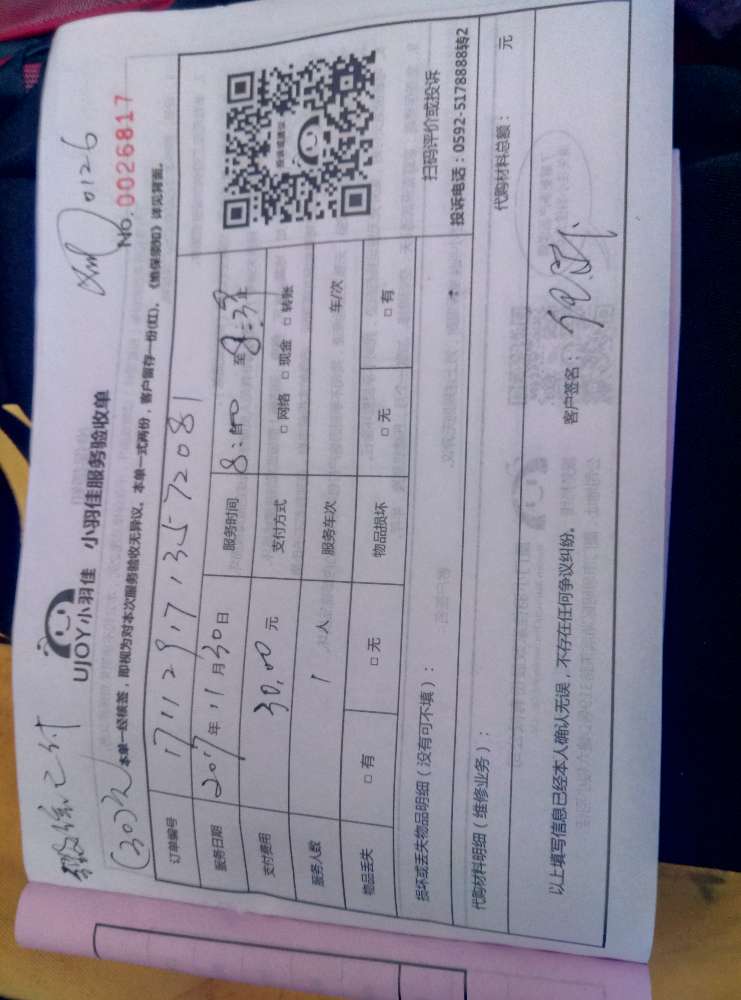 (30)次
0126
UJOY小羽佳 小羽佳服务验收单
No.0026817
本单一经核签，即视为对本次服务验收无异议。本单一式两份，客户留存一份(红)。《他保须知》详见背面。
订单编号 171129171 3572081
服务日期 2017年 11月30日 服务时间 8:00 至 8:30止
支付费用 30.00 元 支付方式 □ 网络 □ 现金 □ 转账
服务人数 1 人 服务车次 车/次
物品丢失 □ 有 □ 无 物品损坏 □ 无 □ 有
扫码评价或投诉
投诉电话：0592-5178888转2
损坏或丢失物品明细（没有可不填）：
代购材料明细（维修业务）： 代购材料总额： 元
以上填写信息已经本人确认无误，不存在任何争议纠纷。 客户签名：